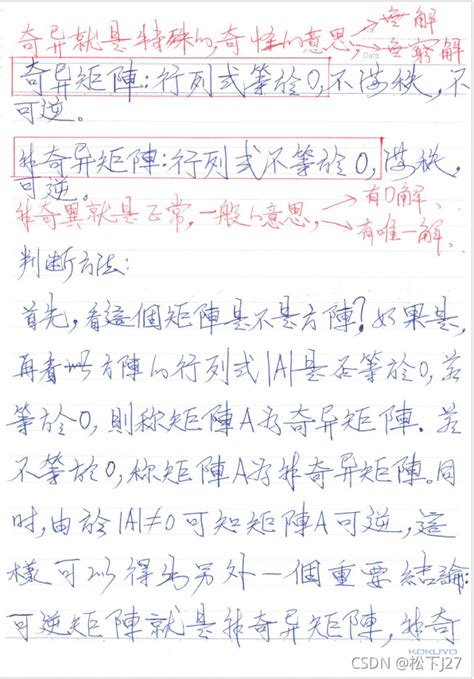 奇异就是特殊的,奇怪的意思,→無解
→無窮解
奇异矩陣:行列式等於0,不滿秩,不
可逆。
非奇异矩陣:行列式不等於0,滿秩,
可逆。
非奇異就是正常,一般的意思,→有0解、
→有唯一解、
判断方法:
首先,看這個矩陣是不是方陣?如果是,
再看此方陣的行列式|A|是否等於0,若
等於0,則称矩陣A为奇异矩陣.若
不等於0,称矩陣A为非奇异矩陣。同
时,由於|A|≠0可知矩陣A可逆,這
樣可以得出另外一個重要結論:
可逆矩陣就是非奇异矩陣,非奇
KOKUYO
CSDN @松下J27